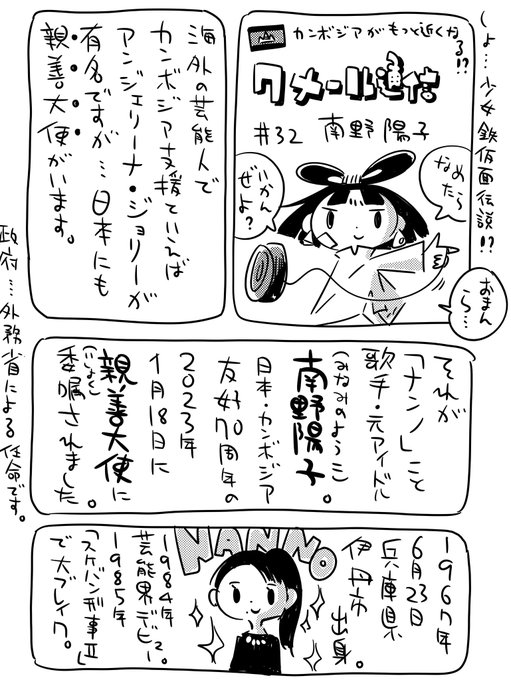 カンボジアがもっと近くなる!?
クメール通信
#32 南野陽子
しょ…少女鉄仮面伝説!?
なめたら
いかん
ぜよ?
おまん
ら…
海外の芸能人で
カンボジア支援といえば
アンジェリーナ・ジョリーが
有名ですが…日本にも
親善大使がいます。
それが
「ナンノ」こと
歌手・元アイドル
南野陽子。
(みなみのようこ)
日本・カンボジア
友好70周年の
2023年
1月18日に
親善大使に
委嘱されました。
(いしょく)
政府…外務省による任命です。
1967年
6月23日
兵庫県
伊丹市
出身。
NANNO
1984年
芸能界デビュー。
1985年
「スケバン刑事II」
で大ブレイク。